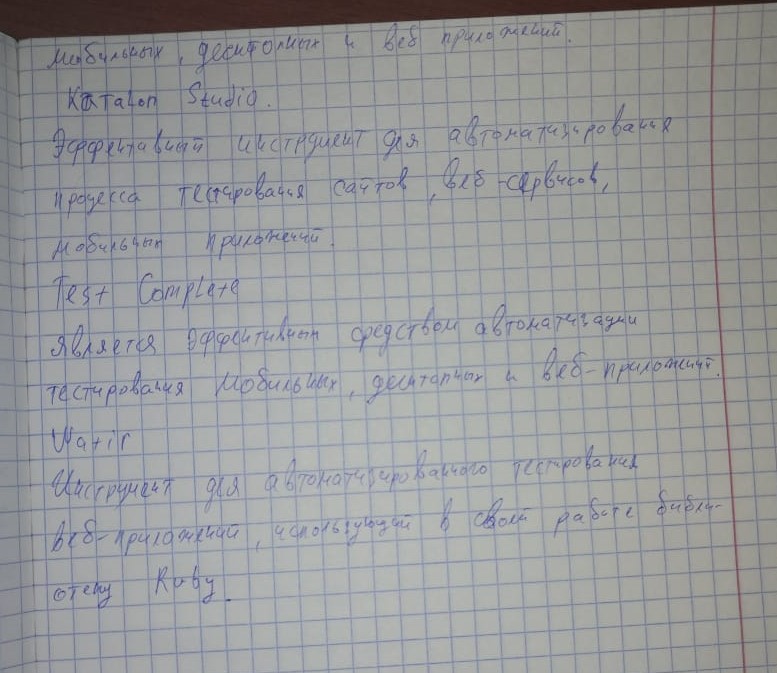 мобильных, десктопных и веб приложений.
Каталоп Studio.
Эффективный инструмент для автоматизирования
процесса тестирования сайтов, веб-сервисов,
мобильных приложений.
Test Complete
Является эффективным средством автоматизации
тестирования мобильных, десктопных и веб-приложений.
Watir
Инструмент для автоматизированного тестирования
веб-приложений, использующий в своей работе библи-
отеку Ruby.